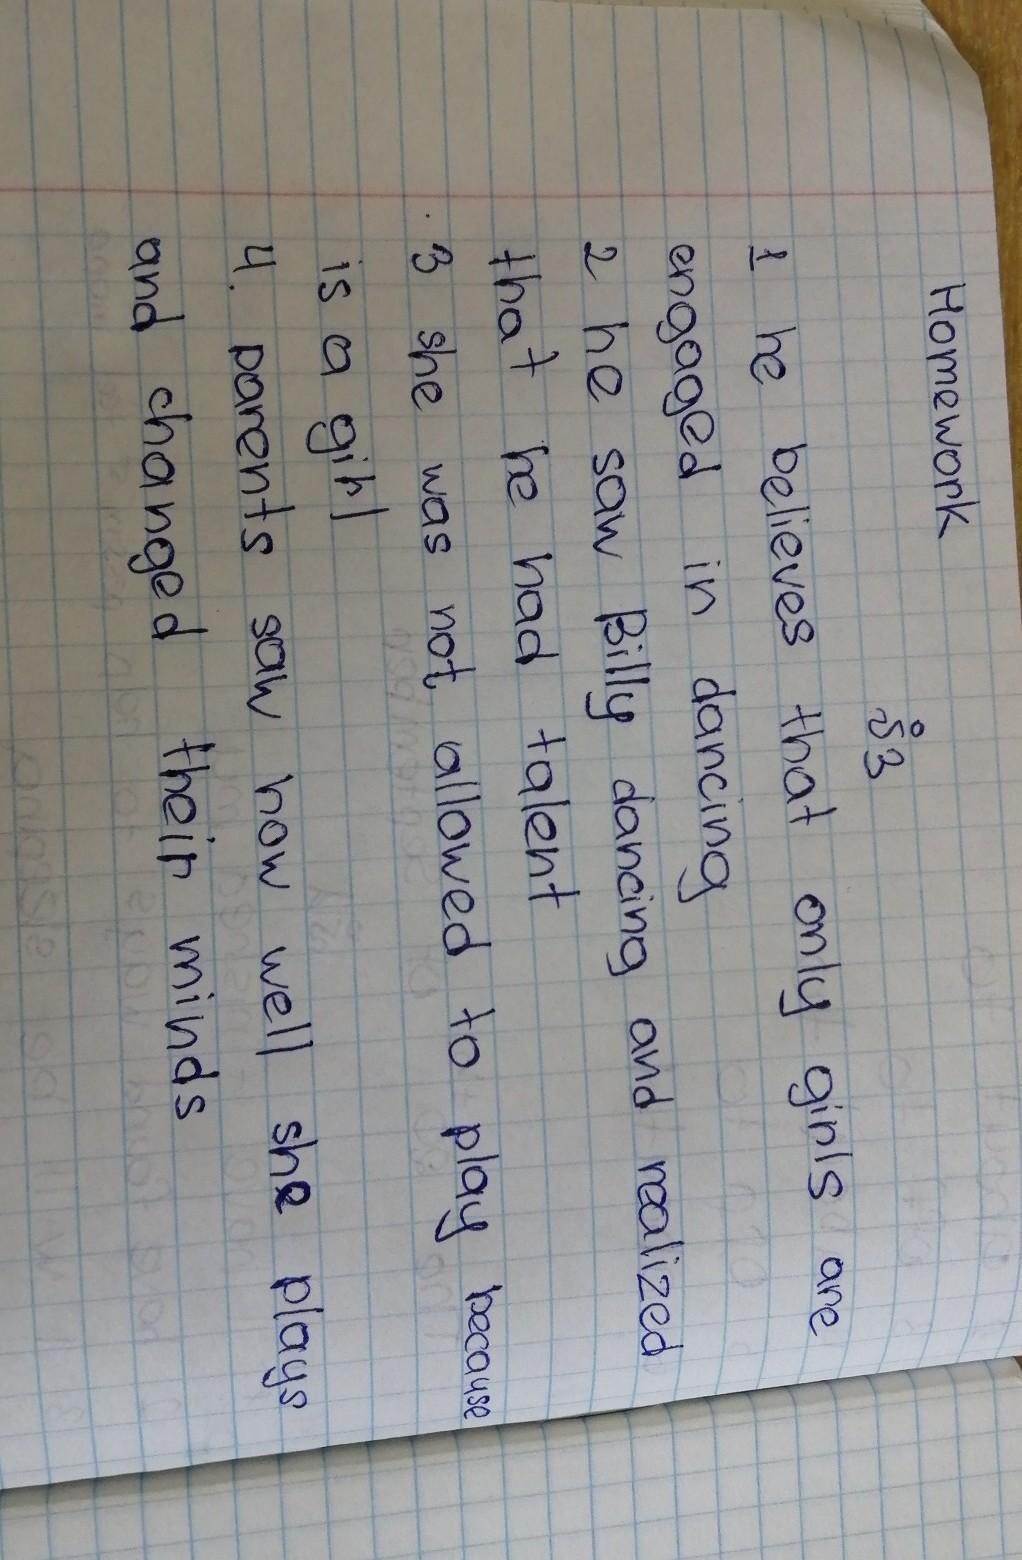 Homework
№3
1 he believes that only girls are
engaged in dancing
2 he saw Billy dancing and realized
that he had talent
3 she was not allowed to play because
is a girl
4. parents saw how well she plays
and changed their minds